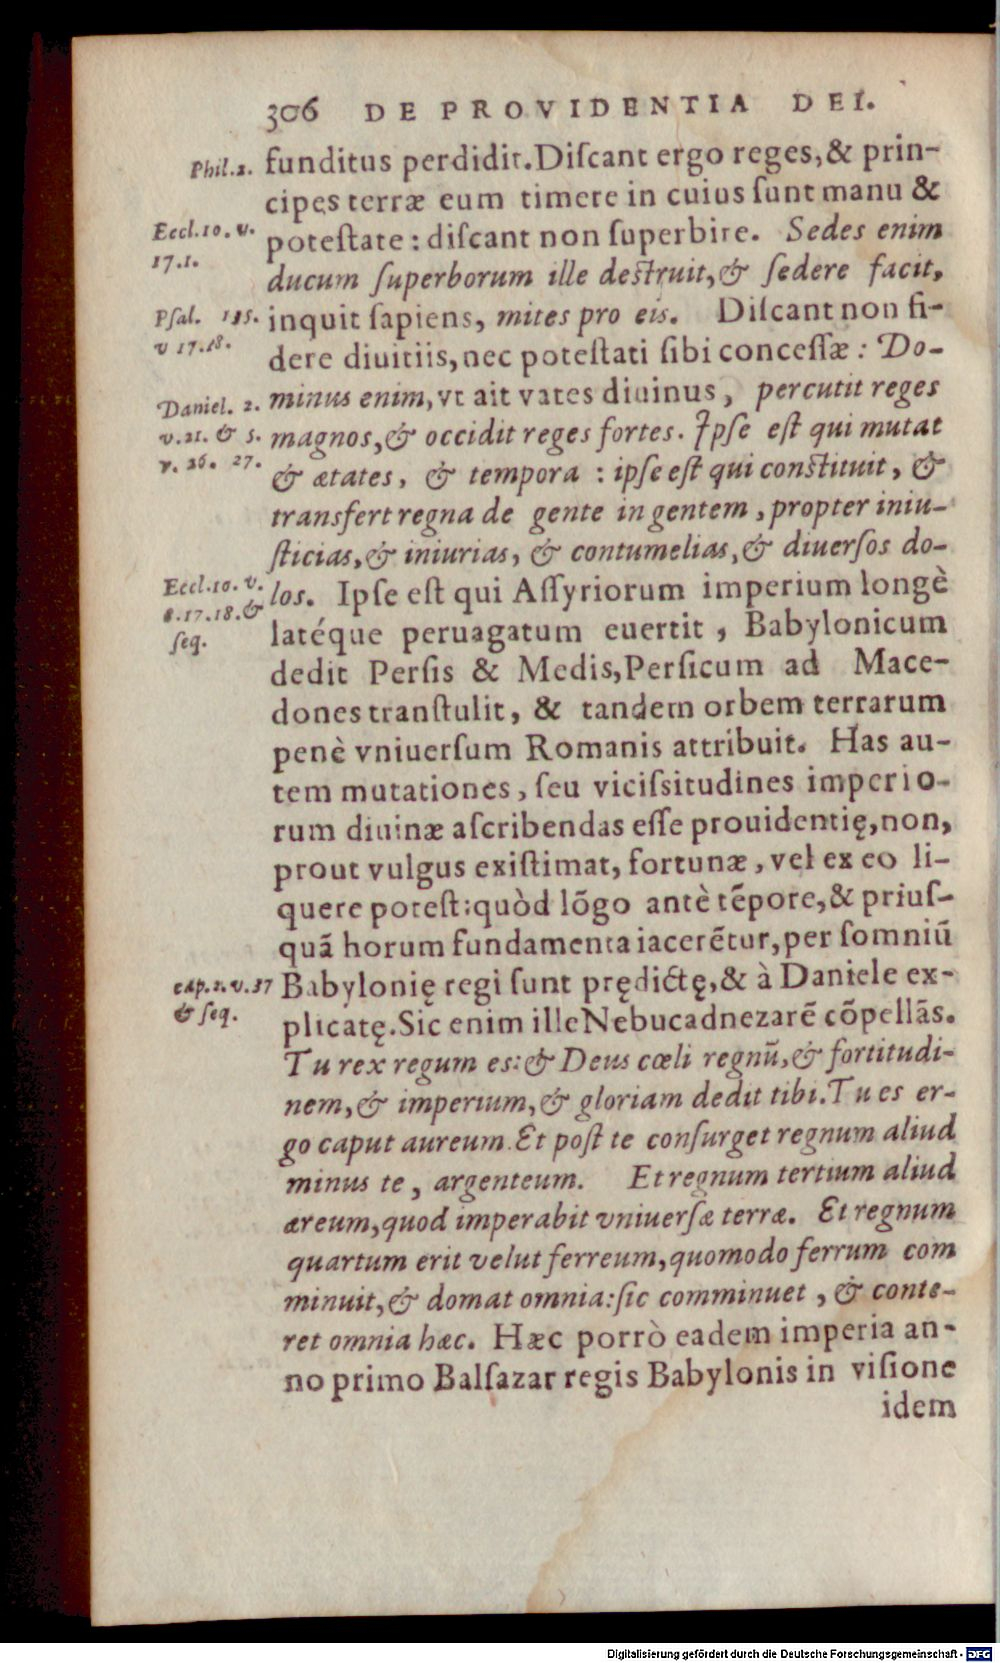 306 DE PROVIDENTIA DEI.
Phil.2. funditus perdidit. Diſcant ergo reges, & prin-
cipes terræ eum timere in cuius ſunt manu &
Eccl.10. v. poteſtate : diſcant non ſuperbire. Sedes enim
17.1. ducum ſuperborum ille deſtruit, & ſedere facit,
Pſal. 135. inquit ſapiens, mites pro eis. Diſcant non fi-
v 17.18. dere diuitiis, nec poteſtati ſibi conceſſæ : Do-
Daniel. 2. minus enim, vt ait vates diuinus, percutit reges
v.21. & 5. magnos, & occidit reges fortes. Ipſe eſt qui mutat
v. 26. 27. & ætates, & tempora : ipſe eſt qui conſtituit, &
transfert regna de gente in gentem, propter iniu-
ſticias, & iniurias, & contumelias, & diuerſos do-
Eccl.10. v. los. Ipſe eſt qui Aſſyriorum imperium longè
8.17.18. & latéque peruagatum euertit, Babylonicum
ſeq. dedit Perſis & Medis, Perſicum ad Mace-
dones tranſtulit, & tandem orbem terrarum
penè vniuerſum Romanis attribuit. Has au-
tem mutationes, ſeu viciſsitudines imperio-
rum diuinæ aſcribendas eſſe prouidentię, non,
prout vulgus exiſtimat, fortunæ, vel ex eo li-
quere poteſt: quòd lõgo antè tẽpore, & priuſ-
quã horum fundamenta iacerẽtur, per ſomniũ
cap.2.v.37 Babylonię regi ſunt prędictę, & à Daniele ex-
& ſeq. plicatę. Sic enim ille Nebucadnezarẽ cõpellãs.
Tu rex regum es: & Deus cœli regnũ, & fortitudi-
nem, & imperium, & gloriam dedit tibi. Tu es er-
go caput aureum. Et poſt te conſurget regnum aliud
minus te, argenteum. Et regnum tertium aliud
æreum, quod imperabit vniuerſæ terræ. Et regnum
quartum erit velut ferreum, quomodo ferrum com
minuit, & domat omnia: ſic comminuet, & conte-
ret omnia hæc. Hæc porrò eadem imperia an-
no primo Balſazar regis Babylonis in viſione
idem
Digitalisierung gefördert durch die Deutsche Forschungsgemeinschaft - DFG